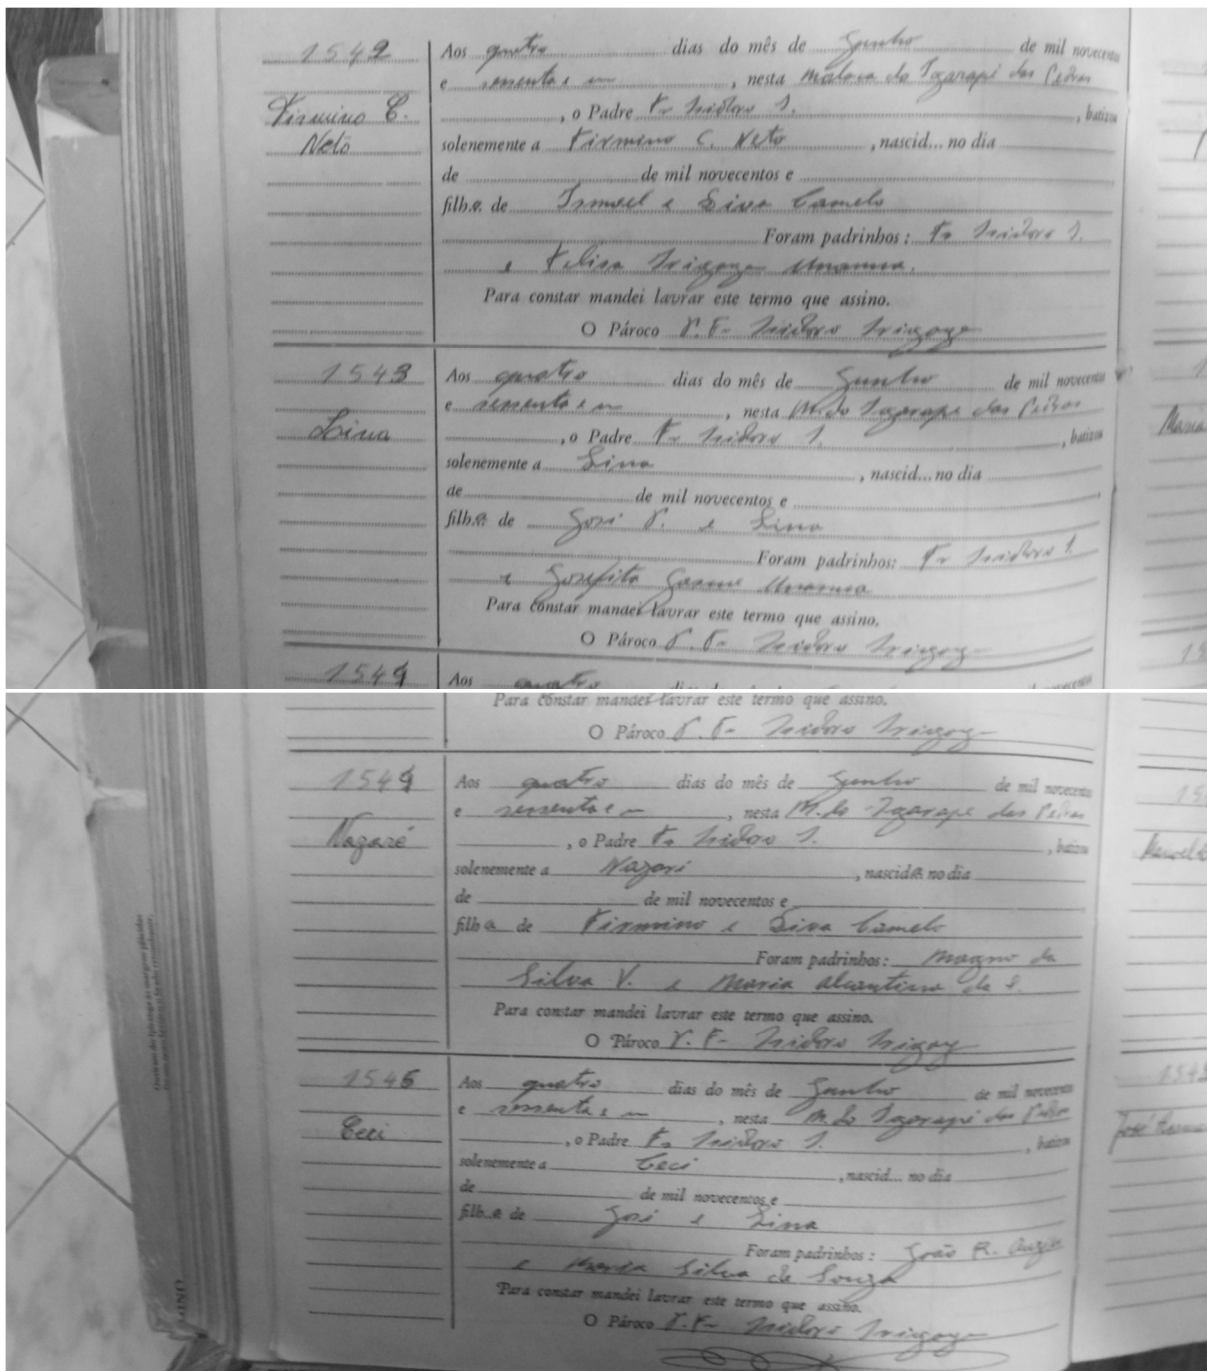 1542
Aos quatro dias do mês de Junho de mil novecentos
e sessenta e um, nesta Maloca do Igarapé das Pedras
Firmino C. Neto
, o Padre Fr. Isidoro I. , batizou
solenemente a Firmino C. Neto , nascid... no dia
de de mil novecentos e
filho de Ismael e Siva Camelo
Foram padrinhos: Fr. Isidoro I.
e Felisa Irigoye
Para constar mandei lavrar este termo que assino.
O Pároco P. F. Isidoro Irigoye
1543
Aos quatro dias do mês de Junho de mil novecentos
e sessenta e um , nesta M. do Igarapé das Pedras
Lina
, o Padre Fr. Isidoro I. , batizou
solenemente a Lina , nascid... no dia
de de mil novecentos e
filha de José P. e Lina
Foram padrinhos: Fr. Isidoro I.
e Josefita
Para constar mandei lavrar este termo que assino.
O Pároco P. F. Isidoro Irigoye
1544
Aos quatro dias do
Para constar mandei lavrar este termo que assino.
O Pároco P. F. Isidoro Irigoye
1544
Aos quatro dias do mês de Junho de mil novecentos
e sessenta e um , nesta M. do Igarapé das Pedras
Nazaré
, o Padre Fr. Isidoro I. , batizou
solenemente a Nazaré , nascida no dia
de de mil novecentos e
filha de Firmino e Siva Camelo
Foram padrinhos: Magno da
Silva V. e Maria Alcantina de S.
Para constar mandei lavrar este termo que assino.
O Pároco P. F. Isidoro Irigoy
1545
Aos quatro dias do mês de Junho de mil novecentos
e sessenta e um , nesta M. do Igarapé das Pedras
Ceci
, o Padre Fr. Isidoro I. , batizou
solenemente a Ceci , nascid... no dia
de de mil novecentos e
filha de José e Lina
Foram padrinhos: João R.
e Silva de Souza
Para constar mandei lavrar este termo que assino.
O Pároco P. F. Isidoro Irigoye
Maria
José